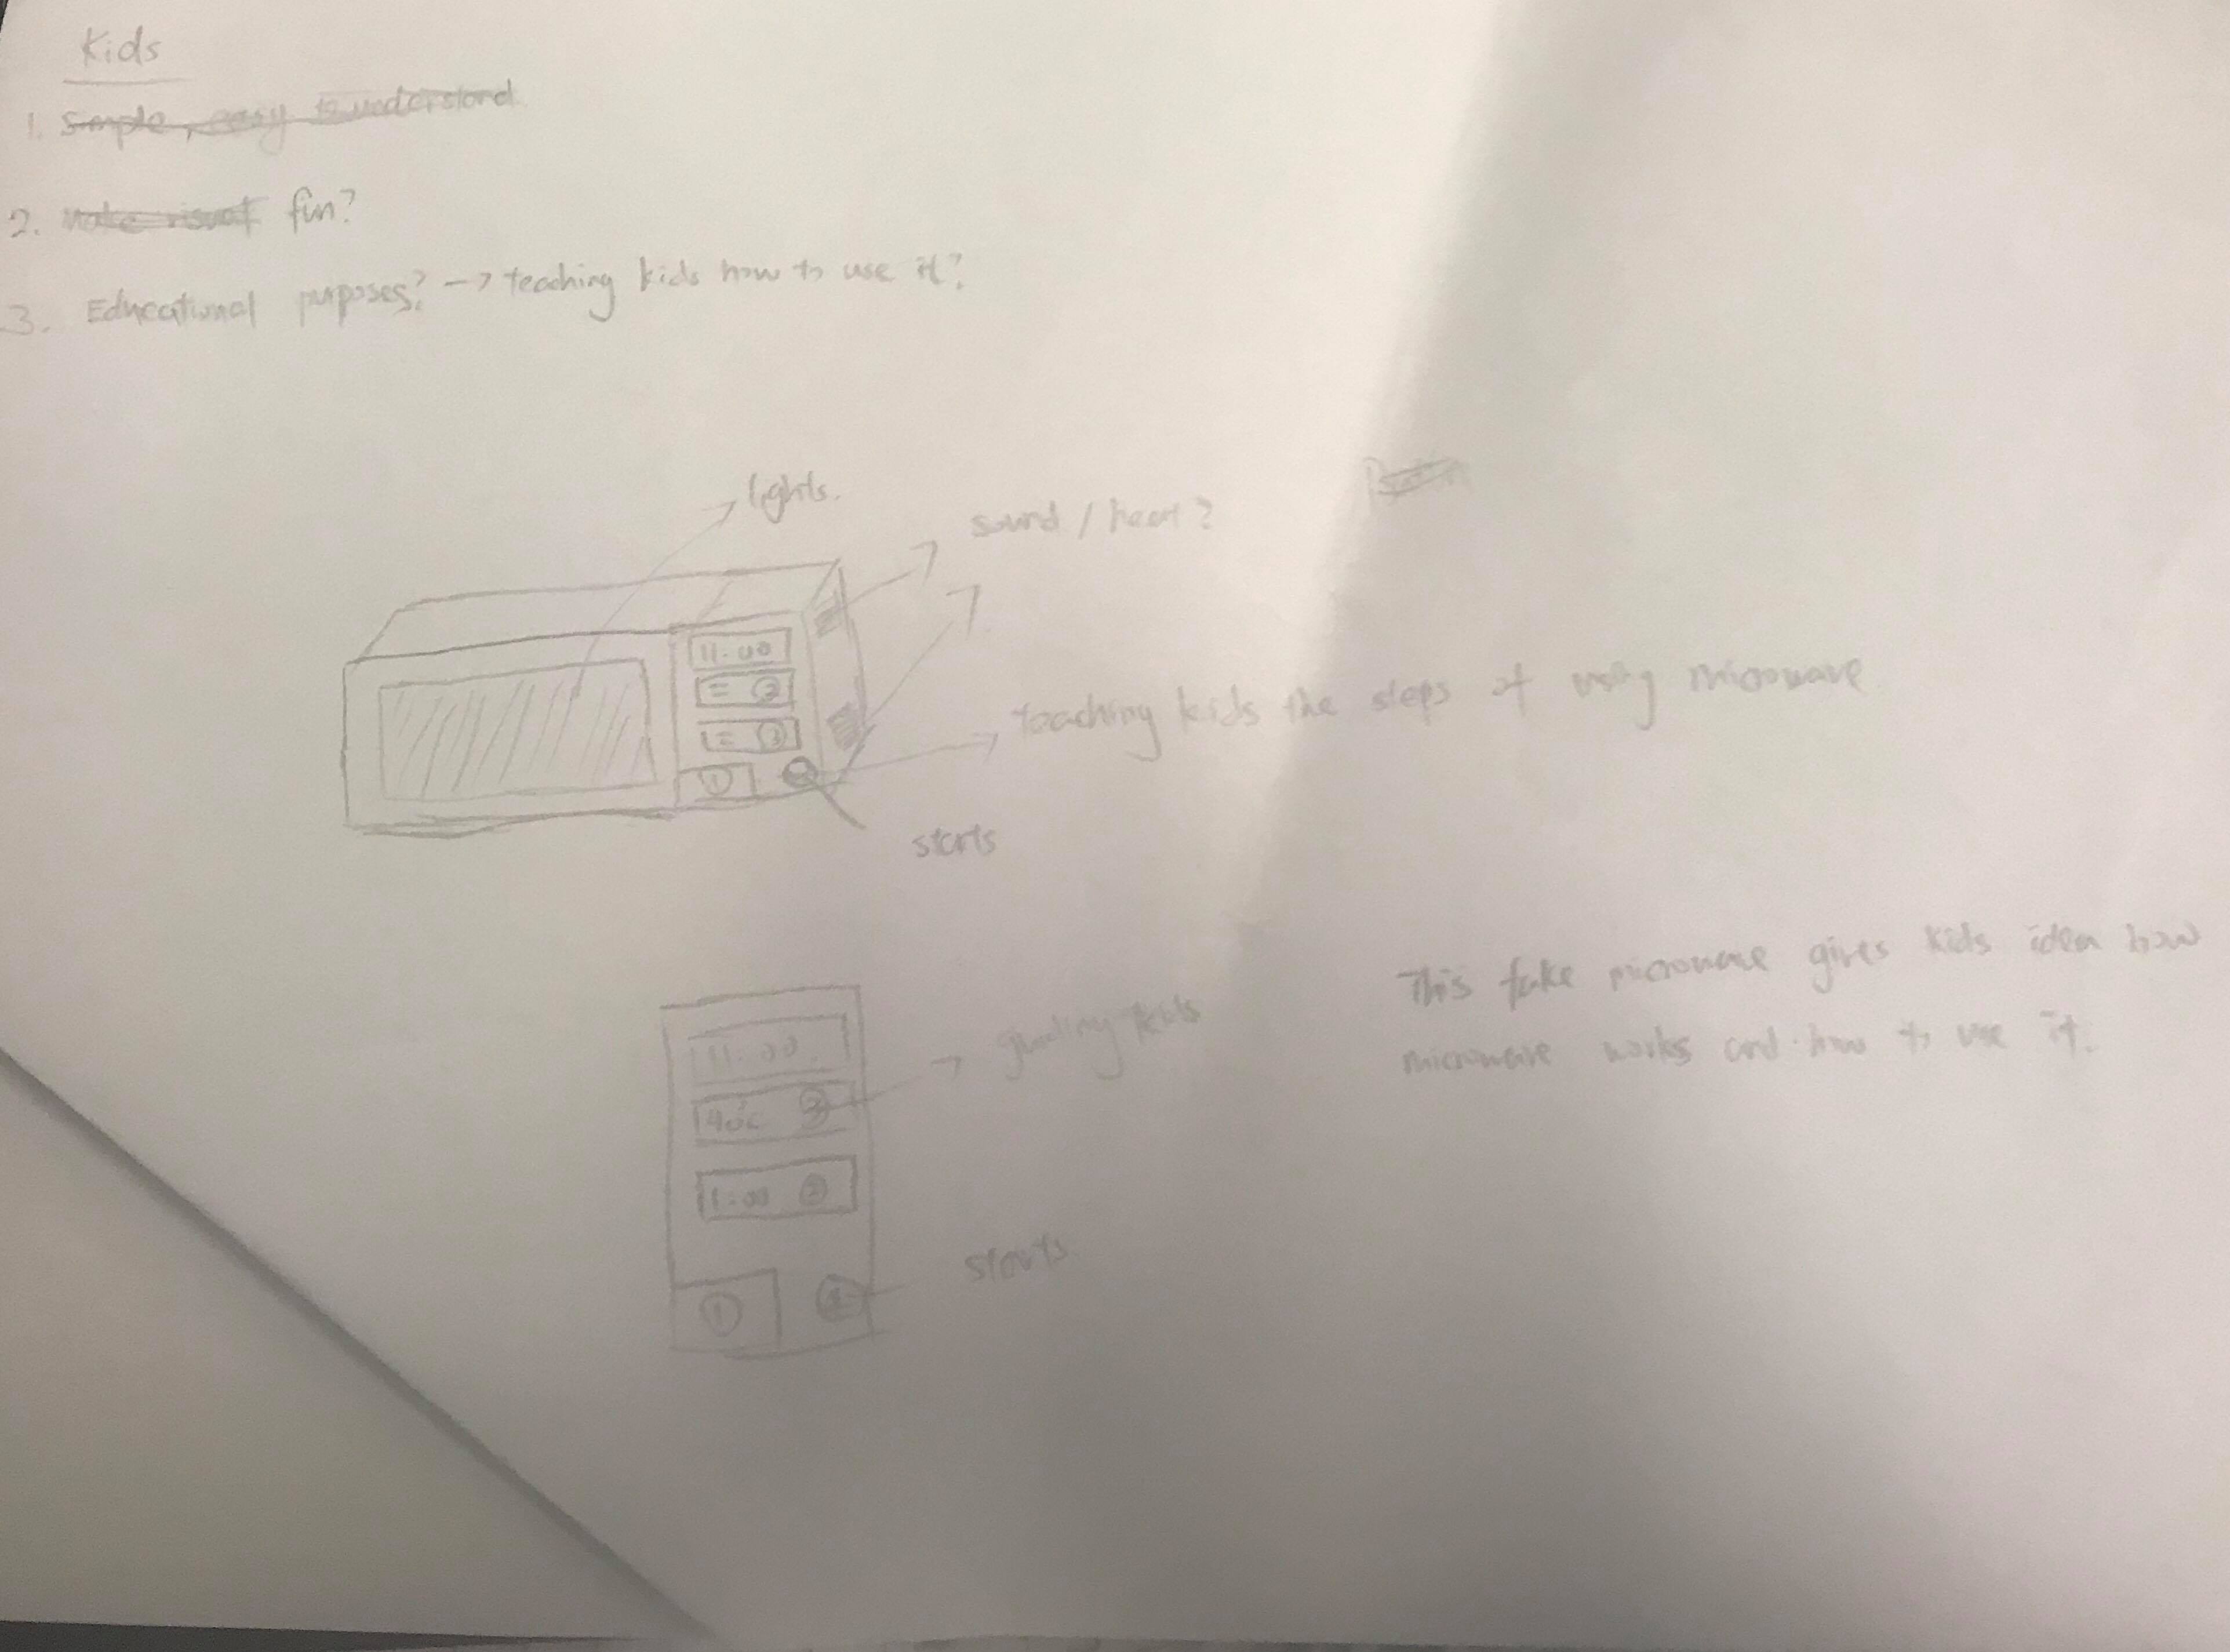 Kids
1. Simple, easy to understand
2. make visual fun?
3. Educational purposes? → teaching kids how to use it?
lights.
sound / heat?
11:00
= ②
= ③
①
teaching kids the steps of using microwave
starts
11:00
40°C
guiding kids
1:00 ②
①
starts
This fake microwave gives kids idea how
microwave works and how to use it.